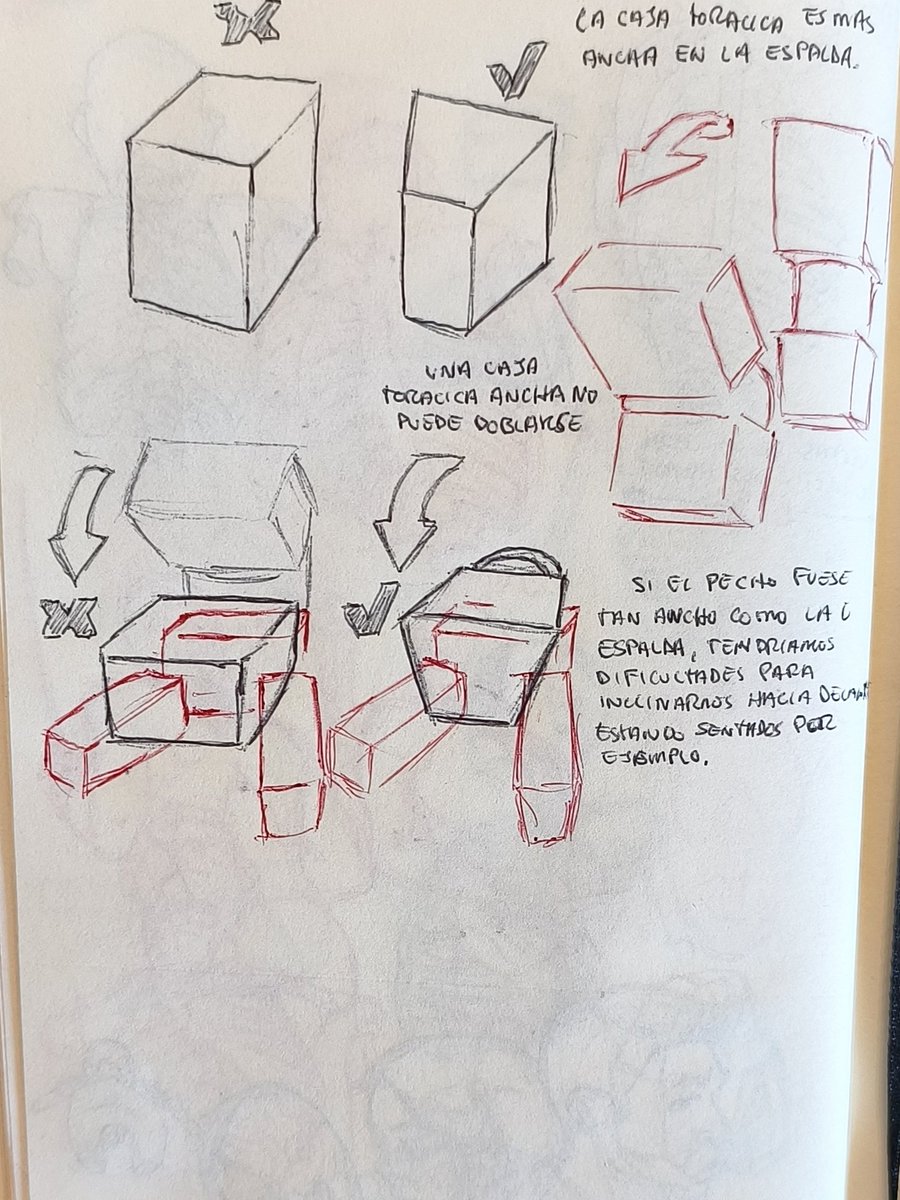 LA CAJA TORACICA ES MAS
ANCHA EN LA ESPALDA.
UNA CAJA
TORACICA ANCHA NO
PUEDE DOBLARSE
SI EL PECHO FUESE
TAN ANCHO COMO LA
ESPALDA, TENDRIAMOS
DIFICULTADES PARA
INCLINARNOS HACIA DELANT
ESTANDO SENTADOS POR
EJEMPLO.